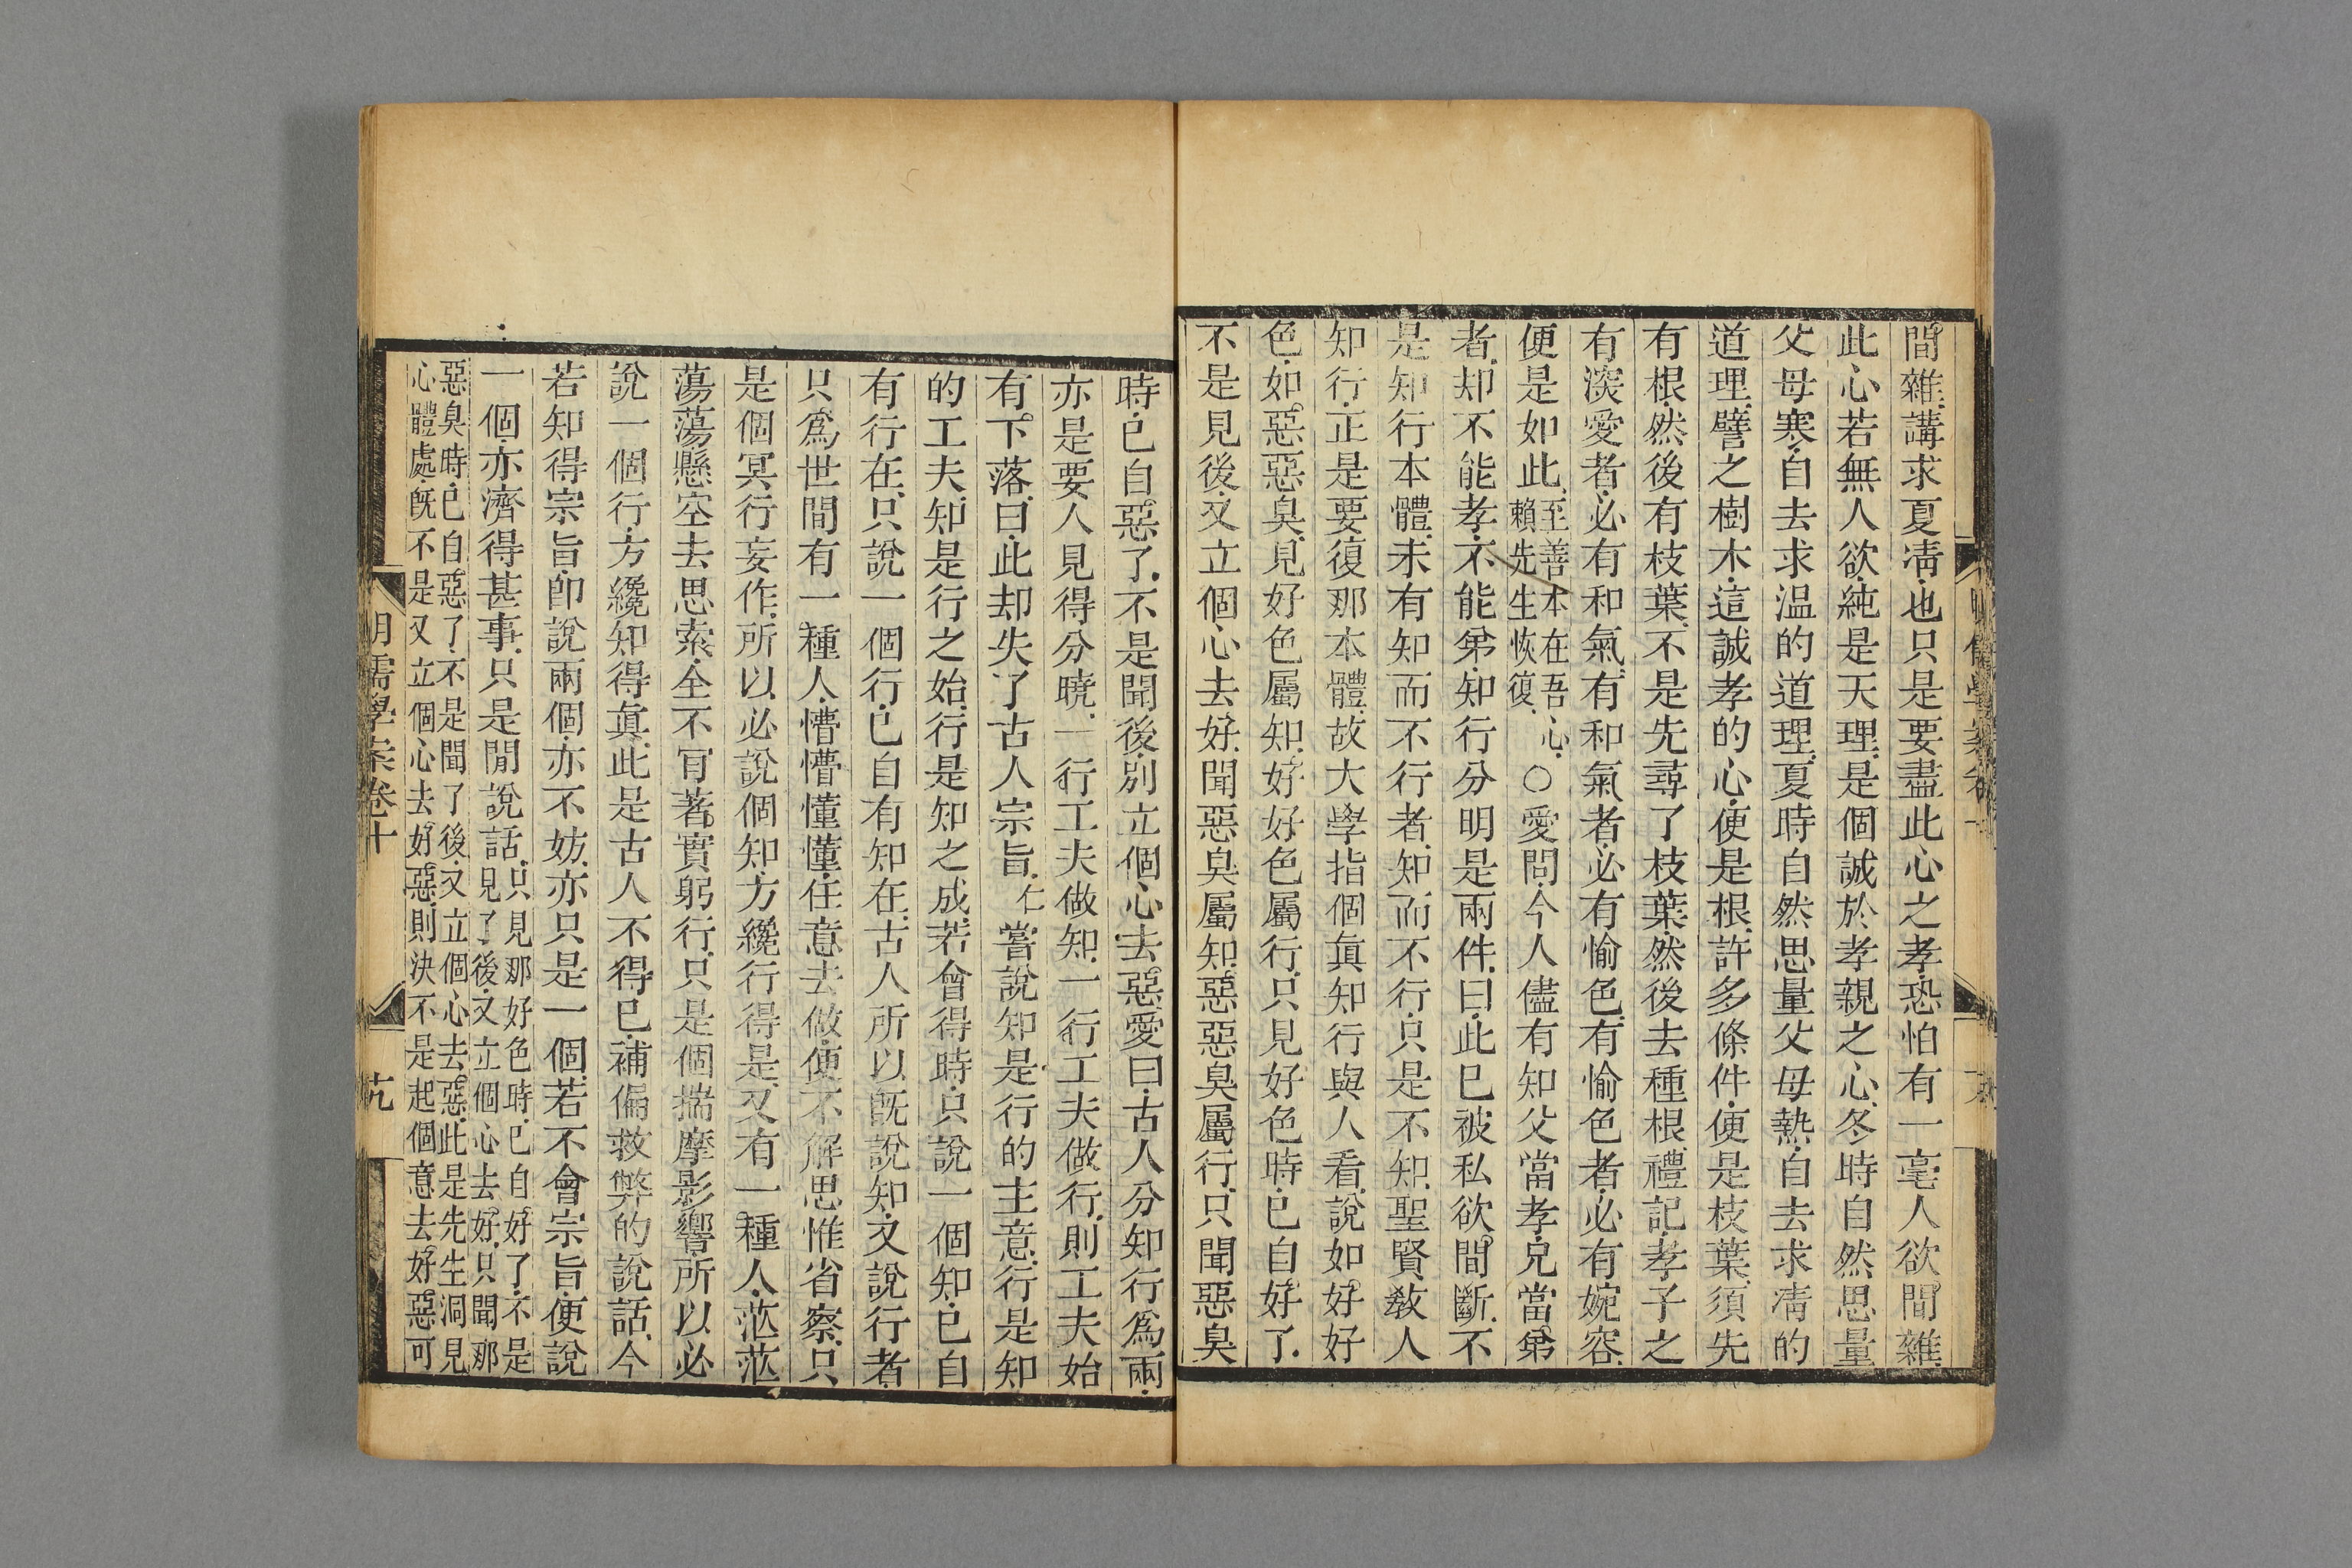 間雜講求夏凊也只是要盡此心之孝恐怕有一毫人欲間雜
此心若無人欲純是天理是個誠於孝親之心冬時自然思量
父母寒自去求温的道理夏時自然思量父母熱自去求凊的
道理譬之樹木這誠孝的心便是根許多條件便是枝葉須先
有根然後有枝葉不是先尋了枝葉然後去種根禮記孝子之
有深愛者必有和氣有和氣者必有愉色有愉色者必有婉容
便是如此至善本在吾心賴先生恢復○愛問今人儘有知父當孝兄當弟
者却不能孝不能弟知行分明是兩件曰此已被私欲間斷不
是知行本體未有知而不行者知而不行只是不知聖賢敎人
知行正是要復那本體故大學指個眞知行與人看說如好好
色如惡惡臭見好色屬知好好色屬行只見好色時已自好了
不是見後又立個心去好聞惡臭屬知惡惡臭屬行只聞惡臭
時已自惡了不是聞後別立個心去惡愛曰古人分知行爲兩
亦是要人見得分曉一行工夫做知一行工夫做行則工夫始
有下落曰此却失了古人宗旨仁嘗說知是行的主意行是知
的工夫知是行之始行是知之成若會得時只說一個知已自
有行在只說一個行已自有知在古人所以旣說知又說行者
只爲世間有一種人懵懵懂懂任意去做便不解思惟省察只
是個冥行妄作所以必說個知方纔行得是又有一種人茫茫
蕩蕩懸空去思索全不肎著實躬行只是個揣摩影響所以必
說一個行方纔知得眞此是古人不得已補偏救弊的說話今
若知得宗旨卽說兩個亦不妨亦只是一個若不會宗旨便說
一個亦濟得甚事只是閒說話只見那好色時已自好了不是見了後又立個心去好只聞那
惡臭時已自惡了不是聞了後又立個心去惡此是先生洞見心體處旣不是又立個心去好惡則決不是起個意去好惡可
明儒學案卷十